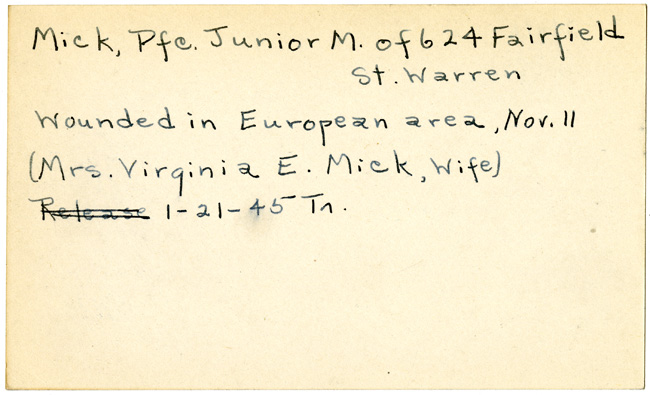 Mick, Pfc. Junior M. of 624 Fairfield
St. Warren
Wounded in European area, Nov. 11
(Mrs. Virginia E. Mick, Wife)
Release 1-21-45 Tr.